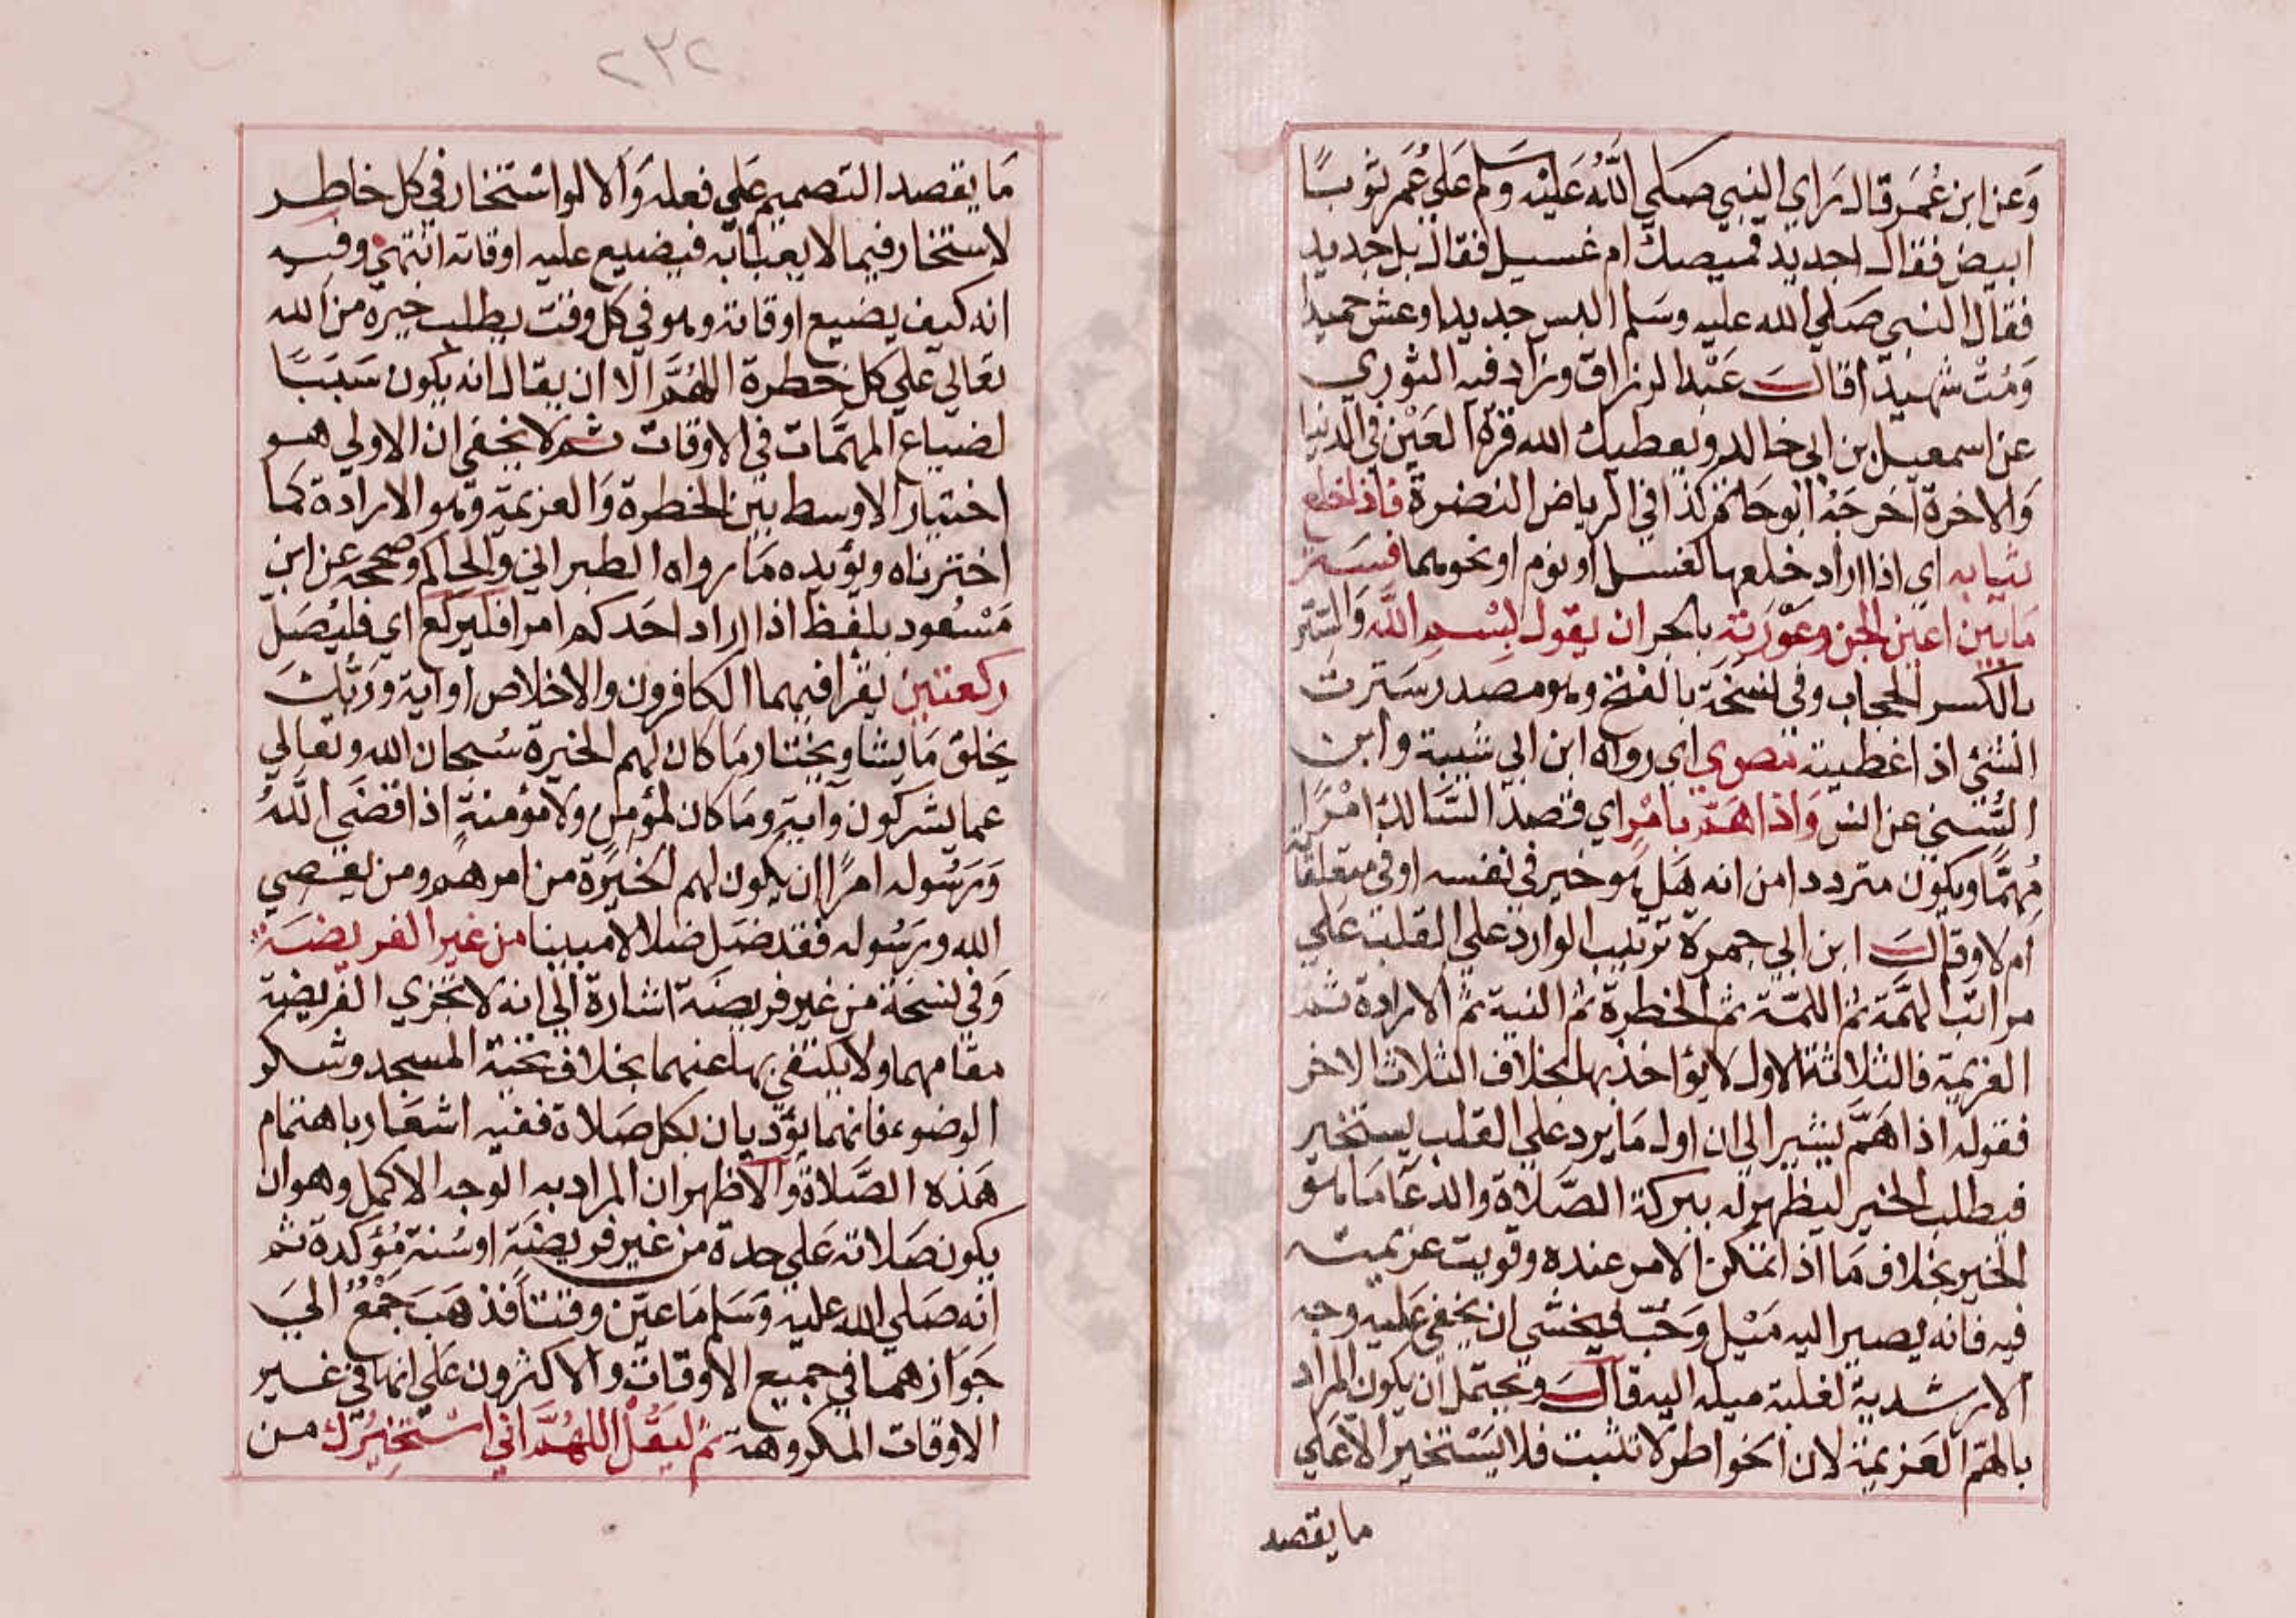 وَعَن ابن عُمَر قال رَاي النبي صَلي اللّه عَليْه وسَلم عَلي عُمَر ثوبًا
ابيض فقال اجديد قميصك ام غسيل فقال بل جديد
فقال النبي صَلي الله عليه وسَلم البس جديدا وعش حميدا
وَمُتْ شهيدا قالَ عَبْد الرزاق وزاد فيه الثوري
عن اسمعيل بن ابي خالد ويعطيك الله قرة العَيْن في الدنيا
وَالاخرة اخرجَهُ ابوحَاتم كذا في الرياض النضرة فاذا خلع
ثيابه اي اذا اراد خلعها لغسل او نوم او نحوهما فسَتر
مَا بَين اعين الجن وعَوْرَته بالجر ان يقول بِسْم اللَّه وَالسِّتر
بالكسر الحجاب وفي نسخَة بالفتح وهو مصدر سَترت
الشئ اذا غطيته مص وي اي رواه ابن ابي شيبة وابن
السُّني عن انس وَاذا هَمّ بامْر اي قصد السَّالك امْرًا
مُهمًّا ويكون مترددا من انه هَل هو خير في نفسه او في متعلقاته
ام لا وقالَ ابن ابي جمرة ترتيب الوارد علي القلب عَلي
مراتب الهمَّة ثم اللمّة ثم الخطرة ثم النية ثم الارادة ثم
العزيمة فالثلاثة الاول لا يؤاخذ بها بخلاف الثلاث الاخر
فقوله اذا هَمَّ يشير الي ان اول مَا يرد علي القلب يستخير
فيطلب الخير ليظهر له ببركة الصَّلاة والدعَا مَا هو
الخير بخلاف مَا اذا تمكن الامر عنده وقويت عزيمته
فيه فانه يصير اليه مَيْل وَحُبّ فيخشي ان يخفي عَليه وجه
الارشدية لغلبة ميله اليه قالَ ويحتمل ان يكون المراد
بالهمّ العَزيمة لان الخواطر لا تثبت فلا يَسْتخير الا عَلي
ما يقصد
٢٣٢
مَا يقصد التصميم عَلي فعله وَالا لو اسْتخار في كل خاطر
لاستخار فيما لا يعبا به فيضيع عليه اوقاته انتهي وفيه
انه كيف يضيع اوقاته وهو في كل وقت يطلب خيرة من الله
تعَالي علي كل خطرة اللهُمَّ الا ان يقال انه يكون سَبَبًا
لضياع المهمَّات في الاوقات ثم لا يخفي ان الاولي هو
اختيار الاوسط بين الخطرة وَالعزيمة وهو الارادة كما
اخترناه ويؤيده مَا رواه الطبراني والحاكم وصححه عن ابن
مَسْعود بلفظ اذا اراد احَدكم امرا فليركع اي فليُصَل
ركعتين يقرا فيهما الكافرون والاخلاص او اية وَرَبُّكَ
يخلق مَا يشا ويختار مَا كان لهم الخيرة سُبحان الله وتعالي
عما يشركون وآية ومَا كان لمؤمن ولا مؤمنةٍ اذا قضَي اللَّهُ
وَرَسُوله امرًا ان يكون لهم الخيَرَة من امرهم ومن يعصي
الله ورَسُوله فقد ضَل ضلالا مبينا من غير الفريضة
وَفي نسخَة من غير فريضَة اشارة الي انه لا تجزي الفريضة
مقامهما ولا يكتفي بها عنهما بخلاف تحية المسجد وشكر
الوضوء فانهما يؤدّيان بكل صَلاة ففيه اشعَار باهتمام
هَذه الصَّلاة وَالاظهر ان المراد به الوجه الاكمل وهو ان
يكون صَلاته عَلي حدة من غير فريضَة او سُنة مُؤكدة ثم
انه صَلي الله عليه وَسَلم مَا عَين وقتاً فذهَبَ جَمْعٌ الي
جَوَازهما في جميع الاوقات والاكثرون عَلي انها في غير
الاوقات المكروهة ثم ليَقُلْ اللهُمَّ اني اسْتخِيرُك من